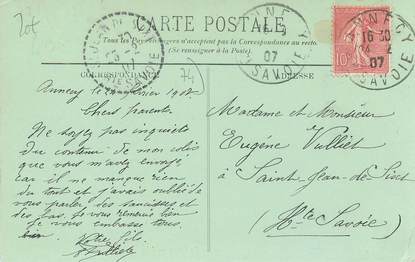 lot
CARTE POSTALE
Tous les Pays n'acceptent pas la Correspondance au recto
(Se renseigner à la Poste)
CORRESPONDANCE
ADRESSE
74
ANNECY
07
SAVOIE
ANNECY
16 30
07
SAVOIE
10
Annecy le
Chers parents
Ne soyez pas inquiets
du contenu de mon colis
que vous m'avez envoyé
car il ne manque rien
du tout et j'avais oublié de
vous parler des saucisses et
des bas. Je vous remercie bien
Je vous embrasse tous
Votre fils
Madame et Monsieur
Eugène Vulliet
à Saint-Jean-de-Sixt
(Hte Savoie)